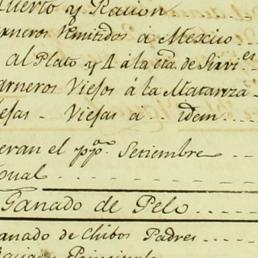 uerto y Racion
arneros remitidos a Mexico
al Plato y 4 á la eta. de Servi.es
arneros Viejos á la Matanza
ejas Viejas a idem
eran el pp.o Setiembre
qual
Ganado de Pelo
anado de Chibos Padres